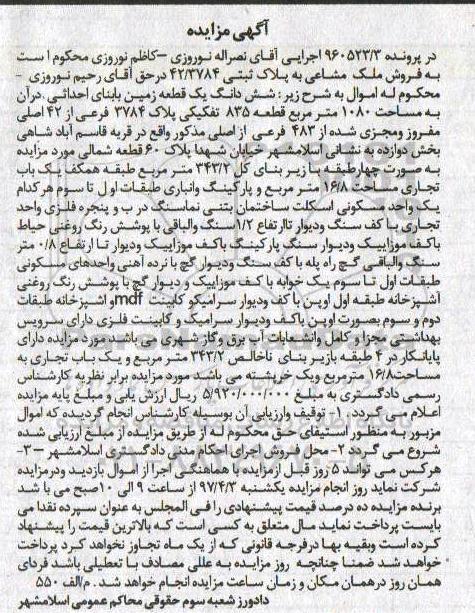 آگهی مزایده
در پرونده ۹۶۰۵۲۳/۳ اجرایی آقای نصراله نوروزی –کاظم نوروزی محکوم است
به فروش ملک مشاعی به پلاک ثبتی ۴۲/۳۷۸۴ درحق آقای رحیم نوروزی -
محکوم له اموال به شرح زیر : شش دانگ یک قطعه زمین بابنای احداثی درآن
به مساحت ۱۰۸۰ متر مربع قطعه ۸۳۵ تفکیکی پلاک ۳۷۸۴ فرعی از ۴۲ اصلی
مفروز ومجزی شده از ۴۸۳ فرعی از اصلی مذکور واقع در قریه قاسم آباد شاهی
بخش دوازده به نشانی اسلامشهر خیابان شهدا پلاک ۶۰ قطعه شمالی مورد مزایده
به صورت چهارطبقه با زیر بنای کل ۳۴۳/۲ متر مربع طبقه همکف یک باب
تجاری مساحت ۱۶/۸ متر مربع و پارکینگ وانباری طبقات اول تا سوم هرکدام
یک واحد مسکونی اسکلت ساختمان بتنی نماسنگ درب و پنجره فلزی واحد
تجاری با کف سنگ ودیوار تاارتفاع ۱/۲ سنگ والباقی با پوشش رنگ روغنی حیاط
باکف موزاییک ودیوار سنگ پارکینگ باکف موزاییک ودیوار تا ارتفاع ۰/۸ متر
سنگ والباقی گچ راه پله با کف سنگ ودیوار گچ با نرده آهنی واحدهای مسکونی
طبقات اول تا سوم یک خوابه با کف موزاییک و دیوار گچ با پوشش رنگ روغنی
آشپزخانه طبقه اول اوپن با کف ودیوار سرامیکو کابینت mdfو اشپزخانه طبقات
دوم و سوم بصورت اوپن باکف ودیوار سرامیک و کابینت فلزی دارای سرویس
بهداشتی مجزای کامل وانشعابات آب برق وگاز شهری می باشد . مورد مزایده دارای
پایانکار در ۴ طبقه بازیر بنای ناخالص ۳۴۳/۲ متر مربع و یک باب تجاری به
مساحت۱۶/۸ مترمربع ویک خرپشته می باشد مورد مزایده برابر نظر به کارشناس
رسمی دادگستری به مبلغ ۵/۹۳۰/۰۰۰/۰۰۰ ریال ارزش یابی و مبلغ پایه مزایده
اعلام می گردد . ۱- توقیف وارزیابی آن بوسیله کارشناس انجام گردیده که اموال
مزبور به منظور استیفای حق محکوم له از طریق مزایده از مبلغ ارزیابی شده
شروع می گردد ۲- محل فروش اجرای احکام مدنی دادگستری اسلامشهر –۳-
هرکس می تواند ۵ روز قبل از مزایده با هماهنگی اجرا از اموال بازدید ودرمزایده
شرکت نماید روز انجام مزایده یکشنبه ۹۷/۴/۳ از ساعت ۹ الی ۱۰صبح می باشد
برنده مزایده ده درصد قیمت پیشنهادی را فی المجلس به عنوان سپرده نقدا می
بایست پرداخت نماید مال متعلق به کسی است که بالاترین قیمت را پیشنهاد
کرده است وبقیه بها درفرجه قانونی که از یک ماه تجاوز نخواهد کرد پرداخت
خواهد شد ضمنا چنانچه روز مزایده به عللی مصادف با تعطیلی باشد فردای
همان روز درهمان مکان و زمان ساعت مزایده انجام خواهد شد . م/الف ۵۵۰
دادورز شعبه سوم حقوقی محاکم عمومی اسلامشهر